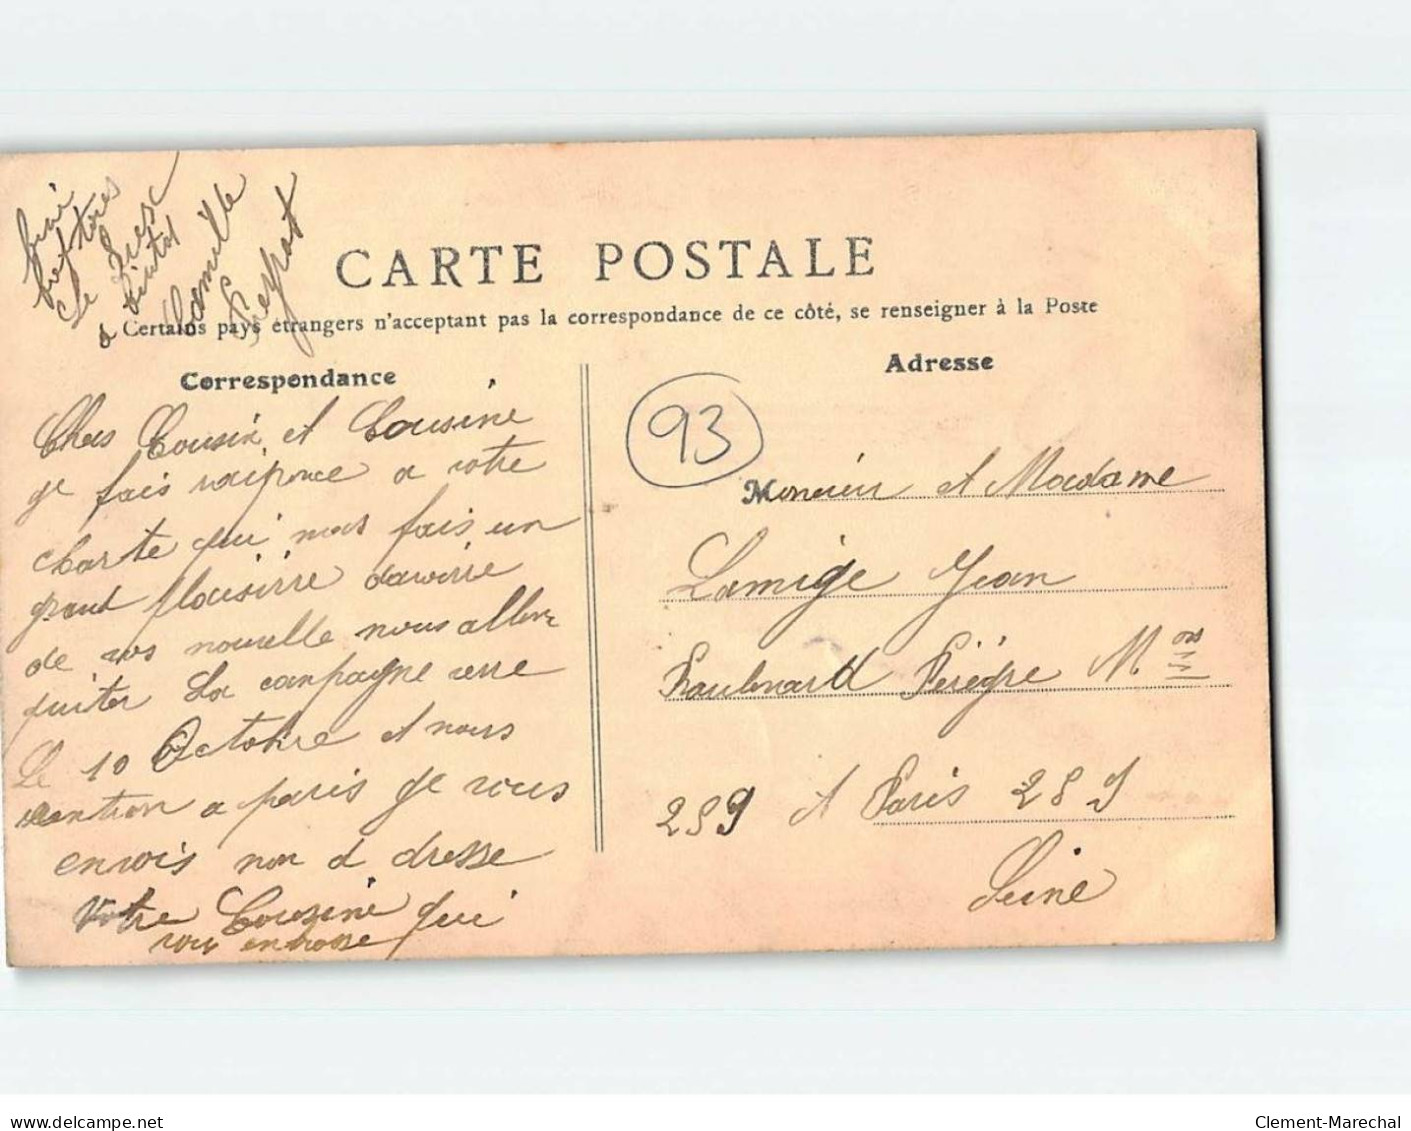 Camille
Peyrot
CARTE POSTALE
Certains pays étrangers n'acceptant pas la correspondance de ce côté, se renseigner à la Poste
Correspondance
Chers Cousin et Cousine
je fais raiponce a votre
charte qui mos fais un
grand plaisirre davoirre
de vos nouvelle nous allons
quiter La campagne verre
Le 10 Octobre et nous
a paris je vous
envois mon a dresse
Votre Cousine qui
vous embrasse
Adresse
93
Monsieur et Madame
Lamige Jean
Boulevard Pérégre M
289 et Paris 289
Seine
delcampe.net
Clement-Marechal